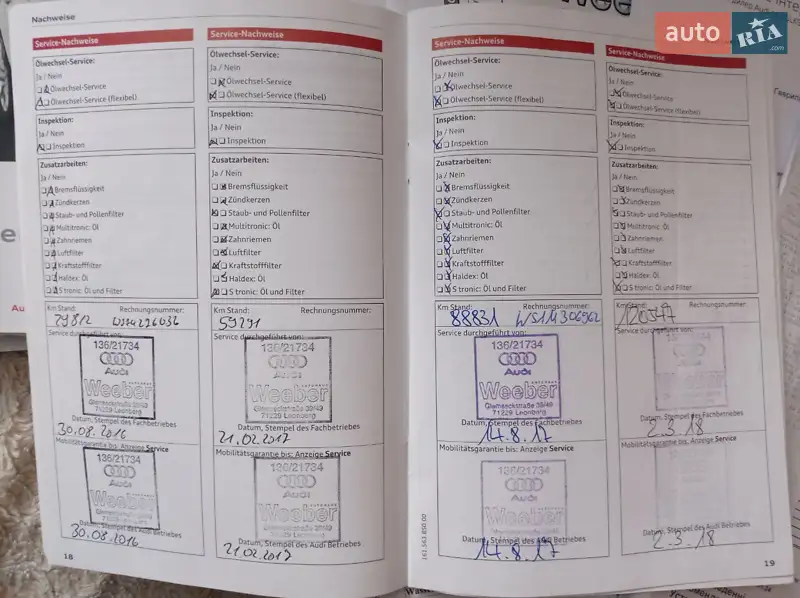 Nachweise
auto RIA .com
Service-Nachweise
Ölwechsel-Service:
Ja / Nein
Ölwechsel-Service
Ölwechsel-Service (flexibel)
Inspektion:
Ja / Nein
Inspektion
Zusatzarbeiten:
Ja / Nein
Bremsflüssigkeit
Zündkerzen
Staub- und Pollenfilter
Multitronic: Öl
Zahnriemen
Luftfilter
Kraftstofffilter
Haldex: Öl
S tronic: Öl und Filter
Km Stand: Rechnungsnummer:
29812
Service durchgeführt von:
136/21734
Audi
Weeber
Glemseckstraße 39/49
71229 Leonberg
Datum, Stempel des Fachbetriebes
30.08.2016
Mobilitätsgarantie bis: Anzeige Service
136/21734
Audi
Weeber
Datum, Stempel des Audi Betriebes
30.08.2016
18
Service-Nachweise
Ölwechsel-Service:
Ja / Nein
Ölwechsel-Service
Ölwechsel-Service (flexibel)
Inspektion:
Ja / Nein
Inspektion
Zusatzarbeiten:
Ja / Nein
Bremsflüssigkeit
Zündkerzen
Staub- und Pollenfilter
Multitronic: Öl
Zahnriemen
Luftfilter
Kraftstofffilter
Haldex: Öl
S tronic: Öl und Filter
Km Stand: Rechnungsnummer:
59291
Service durchgeführt von:
136/21734
Audi
Weeber
Glemseckstraße 39/49
71229 Leonberg
Datum, Stempel des Fachbetriebes
21.02.2017
Mobilitätsgarantie bis: Anzeige Service
136/21734
Audi
Weeber
Glemseckstraße 39/49
71229 Leonberg
Datum, Stempel des Audi Betriebes
21.02.2017
Service-Nachweise
Ölwechsel-Service:
Ja / Nein
Ölwechsel-Service
Ölwechsel-Service (flexibel)
Inspektion:
Ja / Nein
Inspektion
Zusatzarbeiten:
Ja / Nein
Bremsflüssigkeit
Zündkerzen
Staub- und Pollenfilter
Multitronic: Öl
Zahnriemen
Luftfilter
Kraftstofffilter
Haldex: Öl
S tronic: Öl und Filter
Km Stand: Rechnungsnummer:
88831 WS1M306962
Service durchgeführt von:
136/21734
Audi
Weeber
Glemseckstraße 39/49
71229 Leonberg
Datum, Stempel des Fachbetriebes
14.8.17
Mobilitätsgarantie bis: Anzeige Service
136/21734
Audi
Weeber
Datum, Stempel des Audi Betriebes
14.8.17
161.563.850.00
Service-Nachweise
Ölwechsel-Service:
Ja / Nein
Ölwechsel-Service
Ölwechsel-Service (flexibel)
Inspektion:
Ja / Nein
Inspektion
Zusatzarbeiten:
Ja / Nein
Bremsflüssigkeit
Zündkerzen
Staub- und Pollenfilter
Multitronic: Öl
Zahnriemen
Luftfilter
Kraftstofffilter
Haldex: Öl
S tronic: Öl und Filter
Km Stand: Rechnungsnummer:
120547
Service durchgeführt von:
136/21734
Audi
Weeber
Datum, Stempel des Fachbetriebes
2.3.18
Mobilitätsgarantie bis: Anzeige Service
Datum, Stempel des Audi Betriebes
2.3.18
19